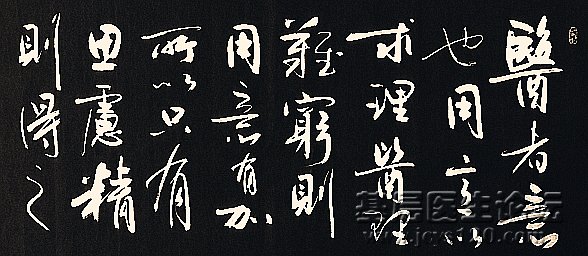 醫者意
也用意以
求理醫理
難窮則
用意有加
所以只有
思慮精
則得之
基层医生论坛